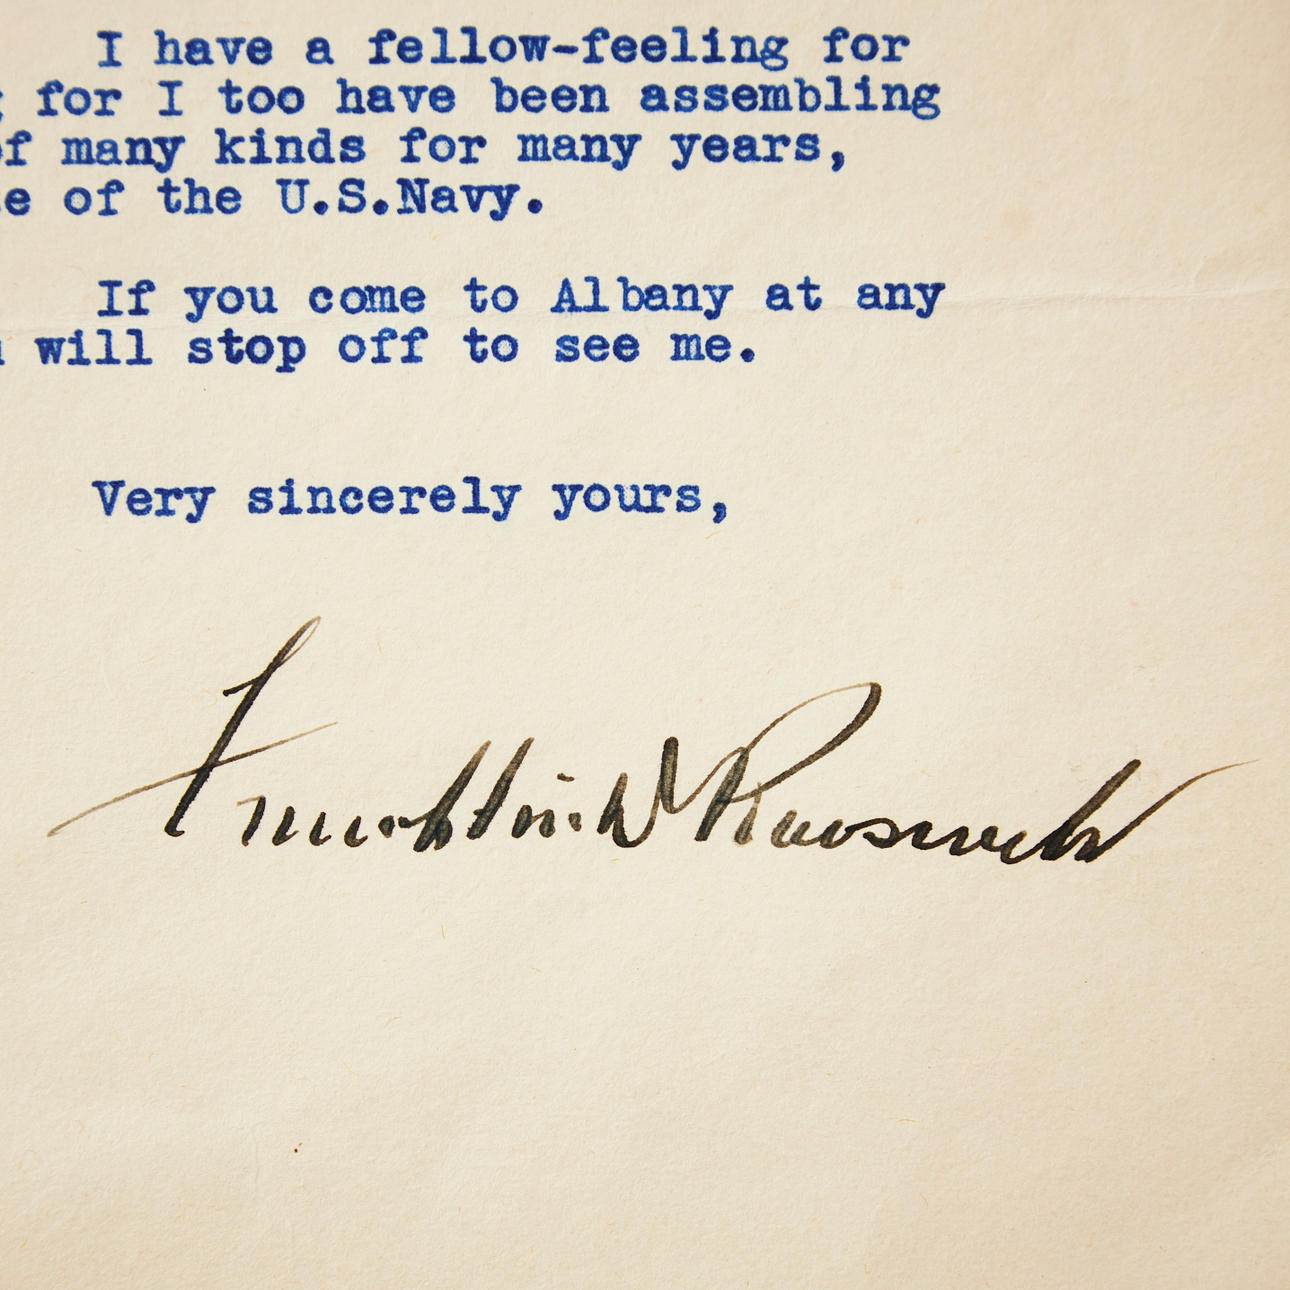 I have a fellow-feeling for
for I too have been assembling
of many kinds for many years,
of the U.S.Navy.
If you come to Albany at any
will stop off to see me.
Very sincerely yours,
Franklin D Roosevelt